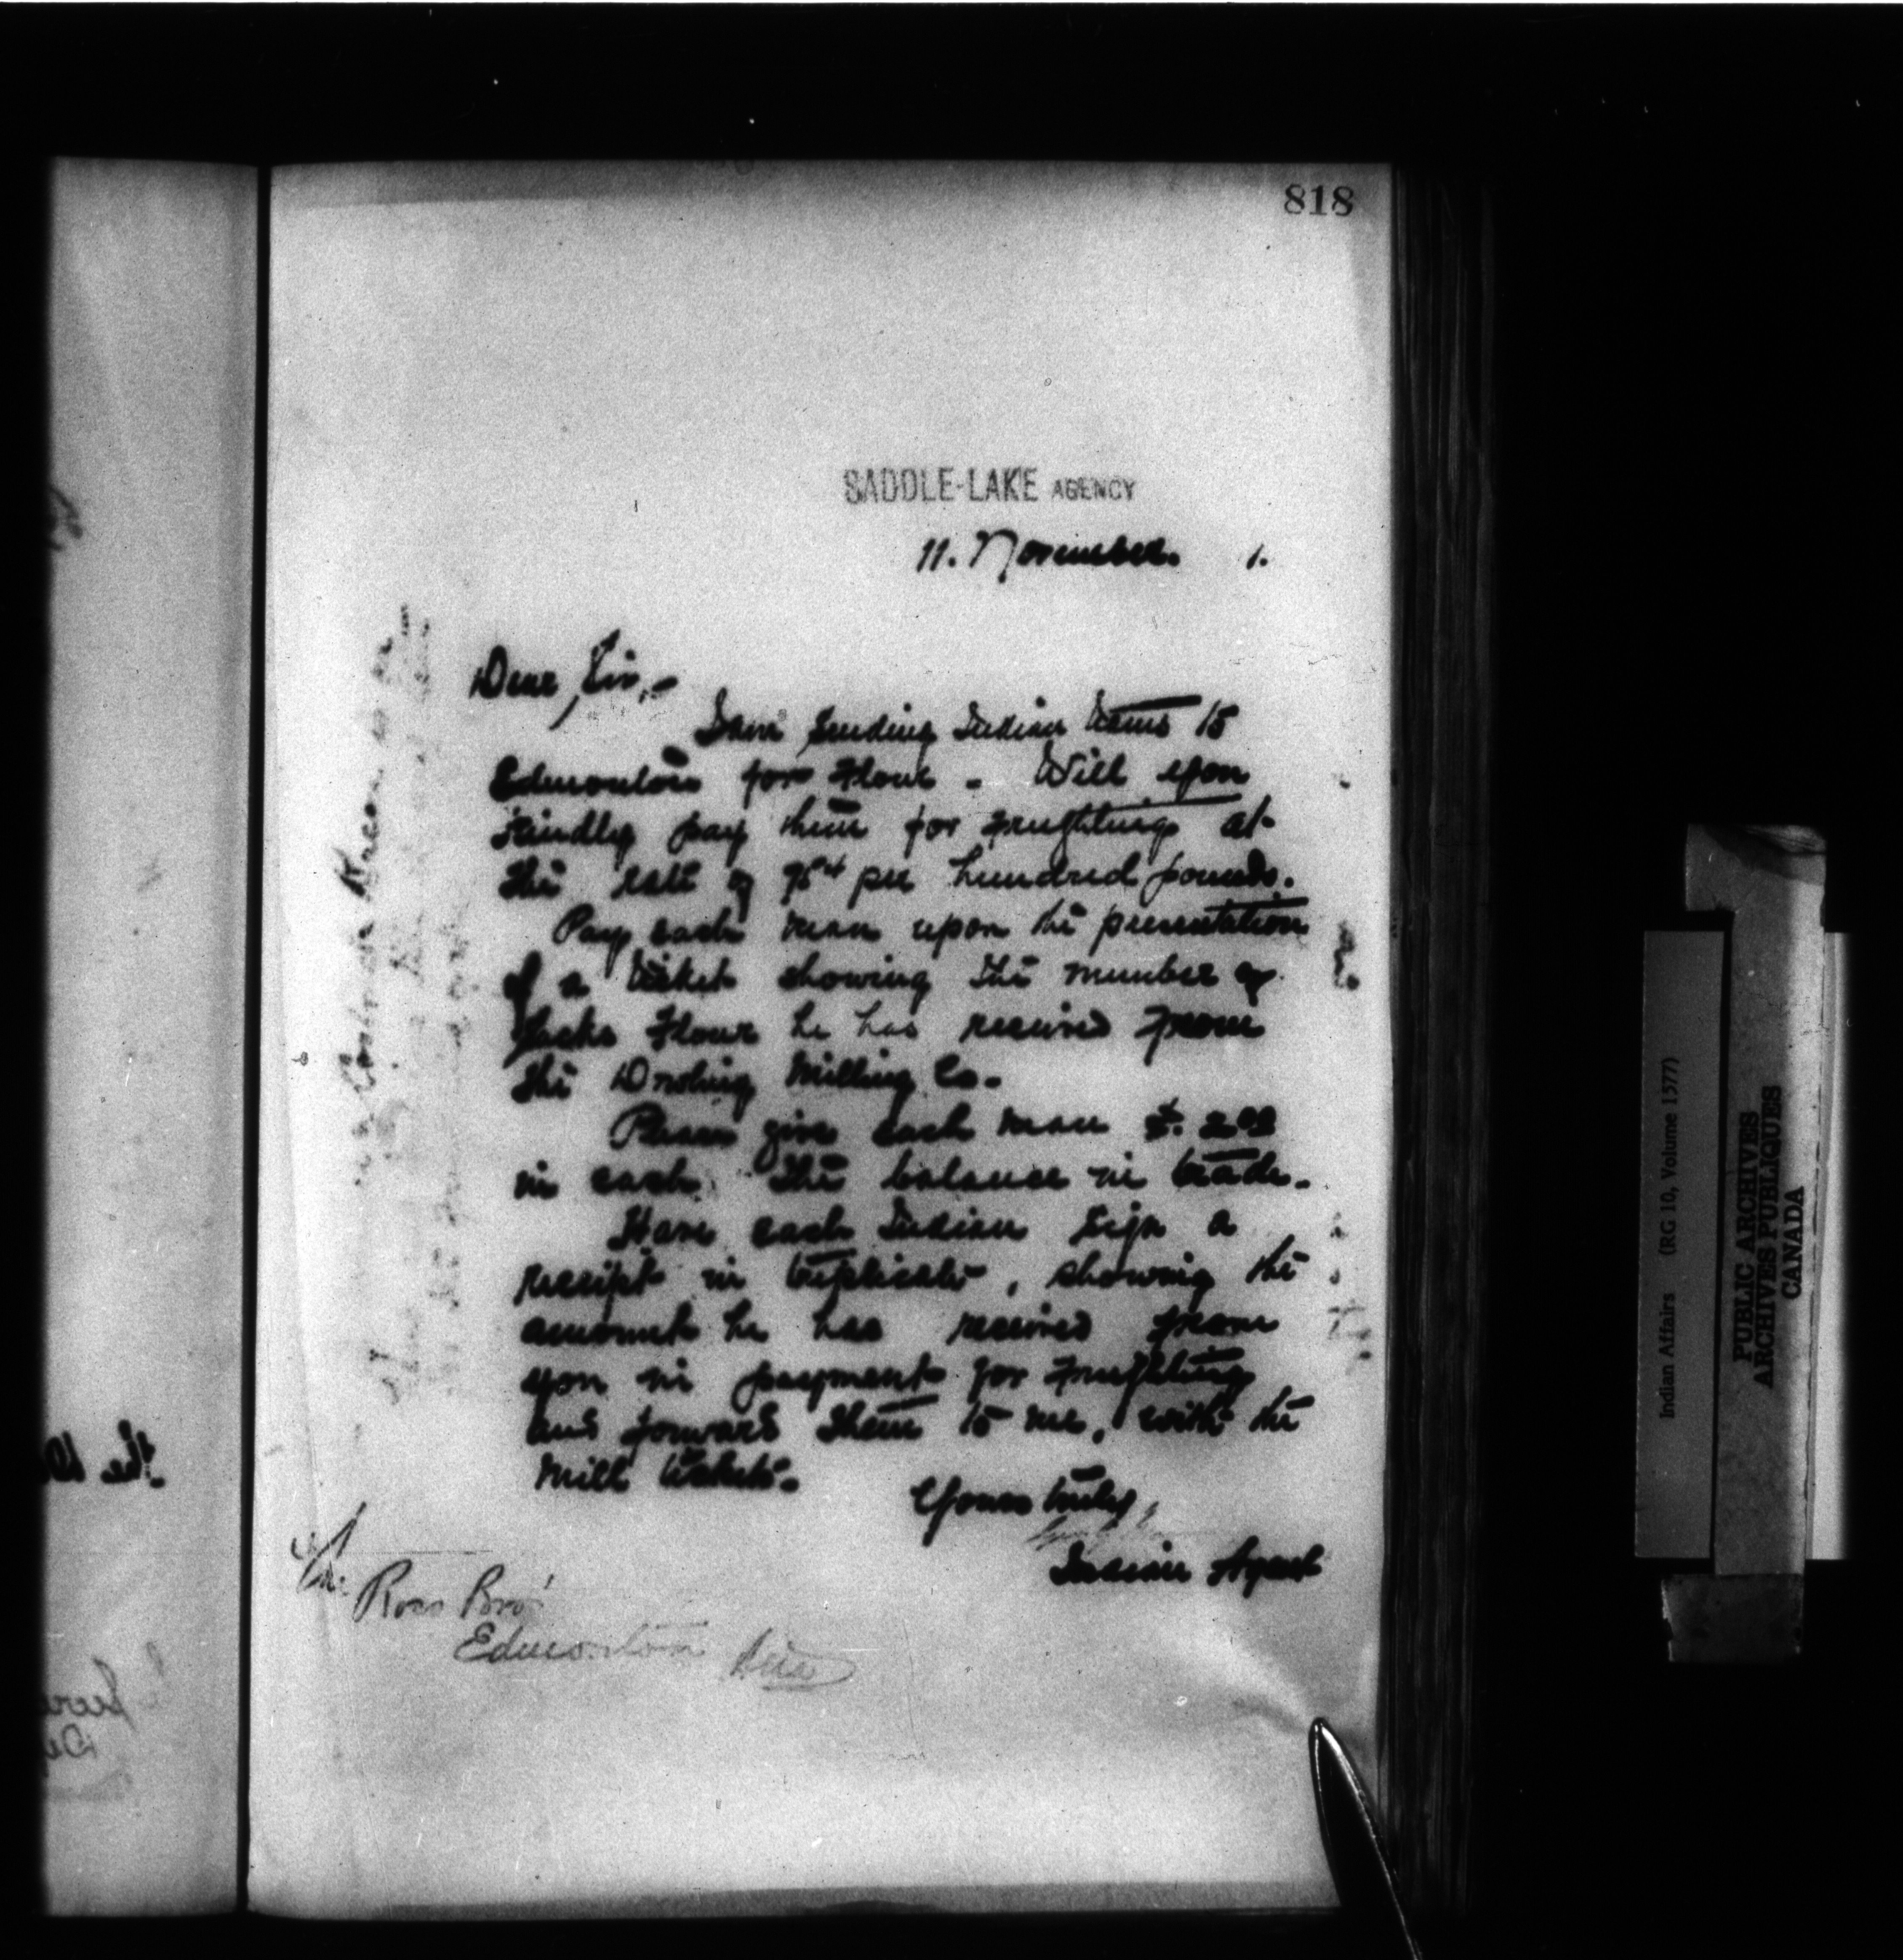 818
SADDLE-LAKE AGENCY
11. November. 1.
Dear Sir,-
I am sending Indian teams to
Edmonton for Flour. Will you
kindly pay them for freighting at
the rate of per hundred pounds.
Pay each man upon the presentation
of a ticket showing the number of
sacks Flour he has received from
the Milling Co.
Please give each man $. 2.00
in cash. The balance in trade.
Have each Indian sign a
receipt in triplicate, showing the
amount he has received from
you in payment for freighting
and forward them to me, with the
Mill tickets.
Yours truly,
Indian Agent
Ross Bro'
Edmonton Alta
the
Indian Affairs (RG 10, Volume 1577)
PUBLIC ARCHIVES
ARCHIVES PUBLIQUES
CANADA